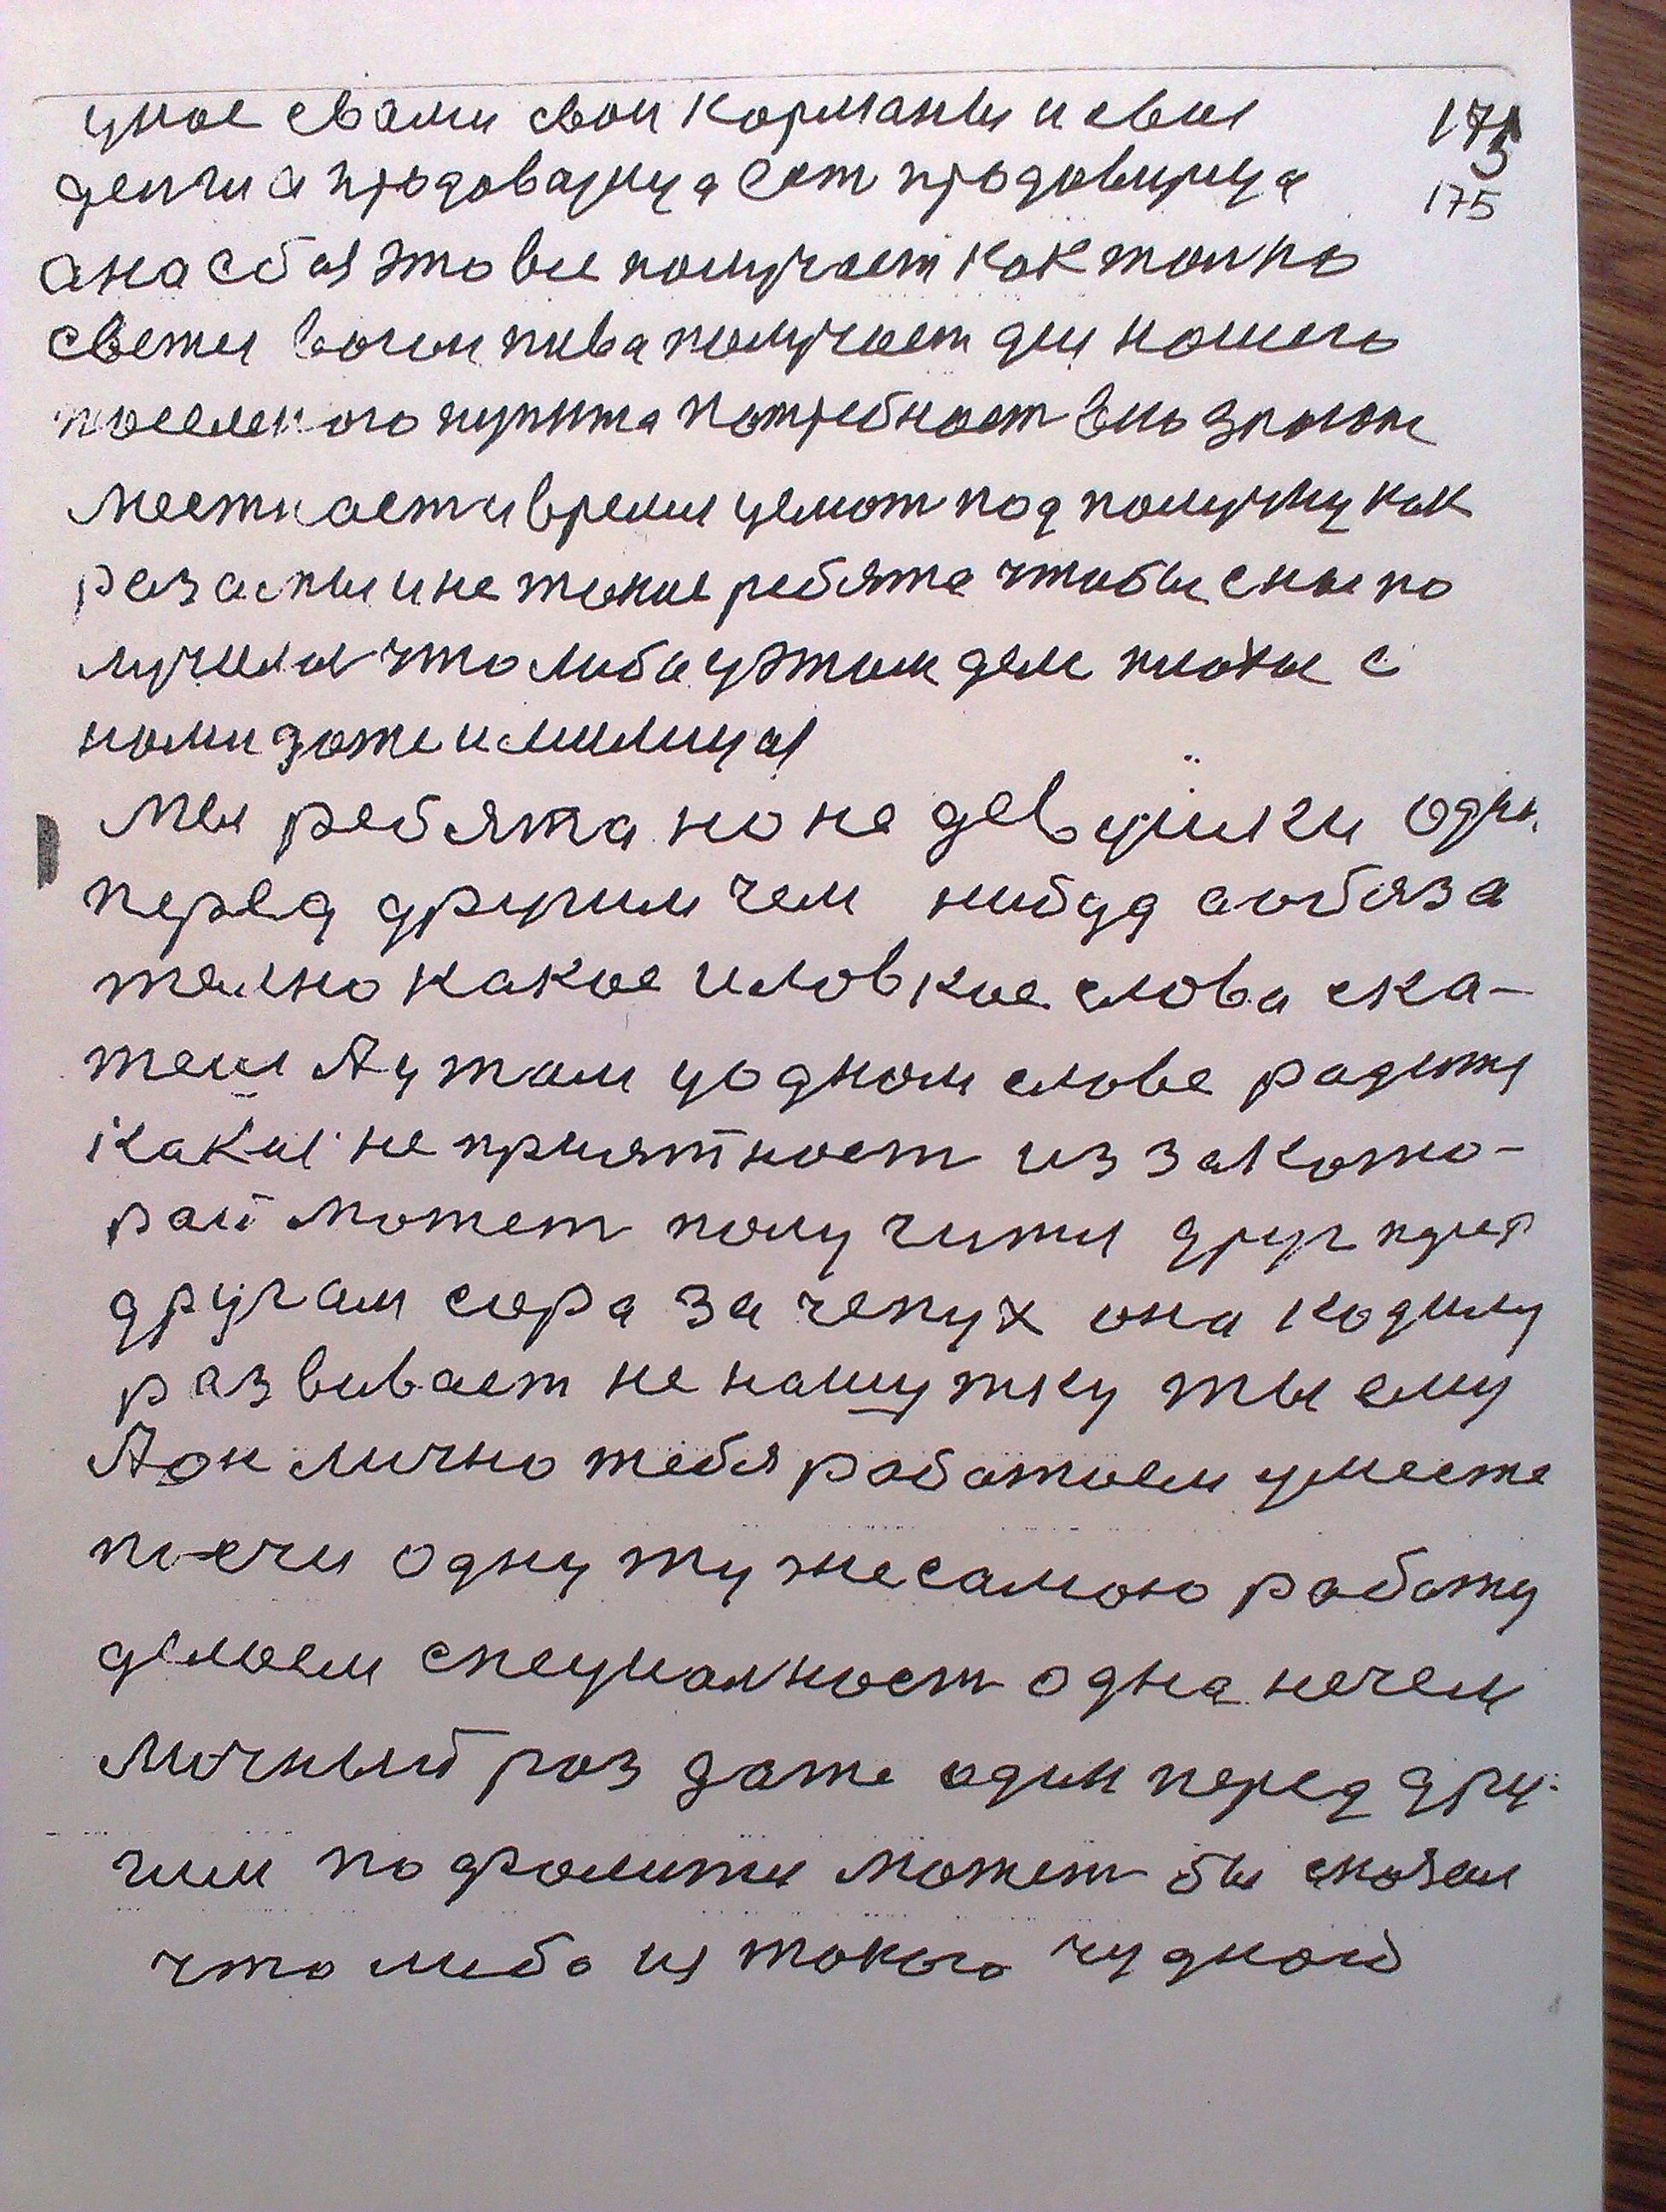 унас свами свои карманы и свои 171
денги а продовазица сот продавщица 5
175
ана сбая это все получает как толко
свежи вагон пива получает для нашего
поселкого пункта потребност
местнасти время цемот под получку как
раз а мы и не такие ребята чтобы сным по
лучили что либо у этом деле плохи с
нами даже и милицыя
Мы ребята но не девушки один
перед другим чем нибуд а обяза
телно какое и ловкое слова ска-
тем А у том у одном слове
какая не приятност из за кото-
рай может получитя друг
другам сора за чепух она
развивает не нашутку ты ему
А он лично тебя работаем уместе
по-ечи одну ту же самою работу
делаем специалност одна нечем
личный раз даже один перед дру-
гим может бы сказал
что либо из такого чудной